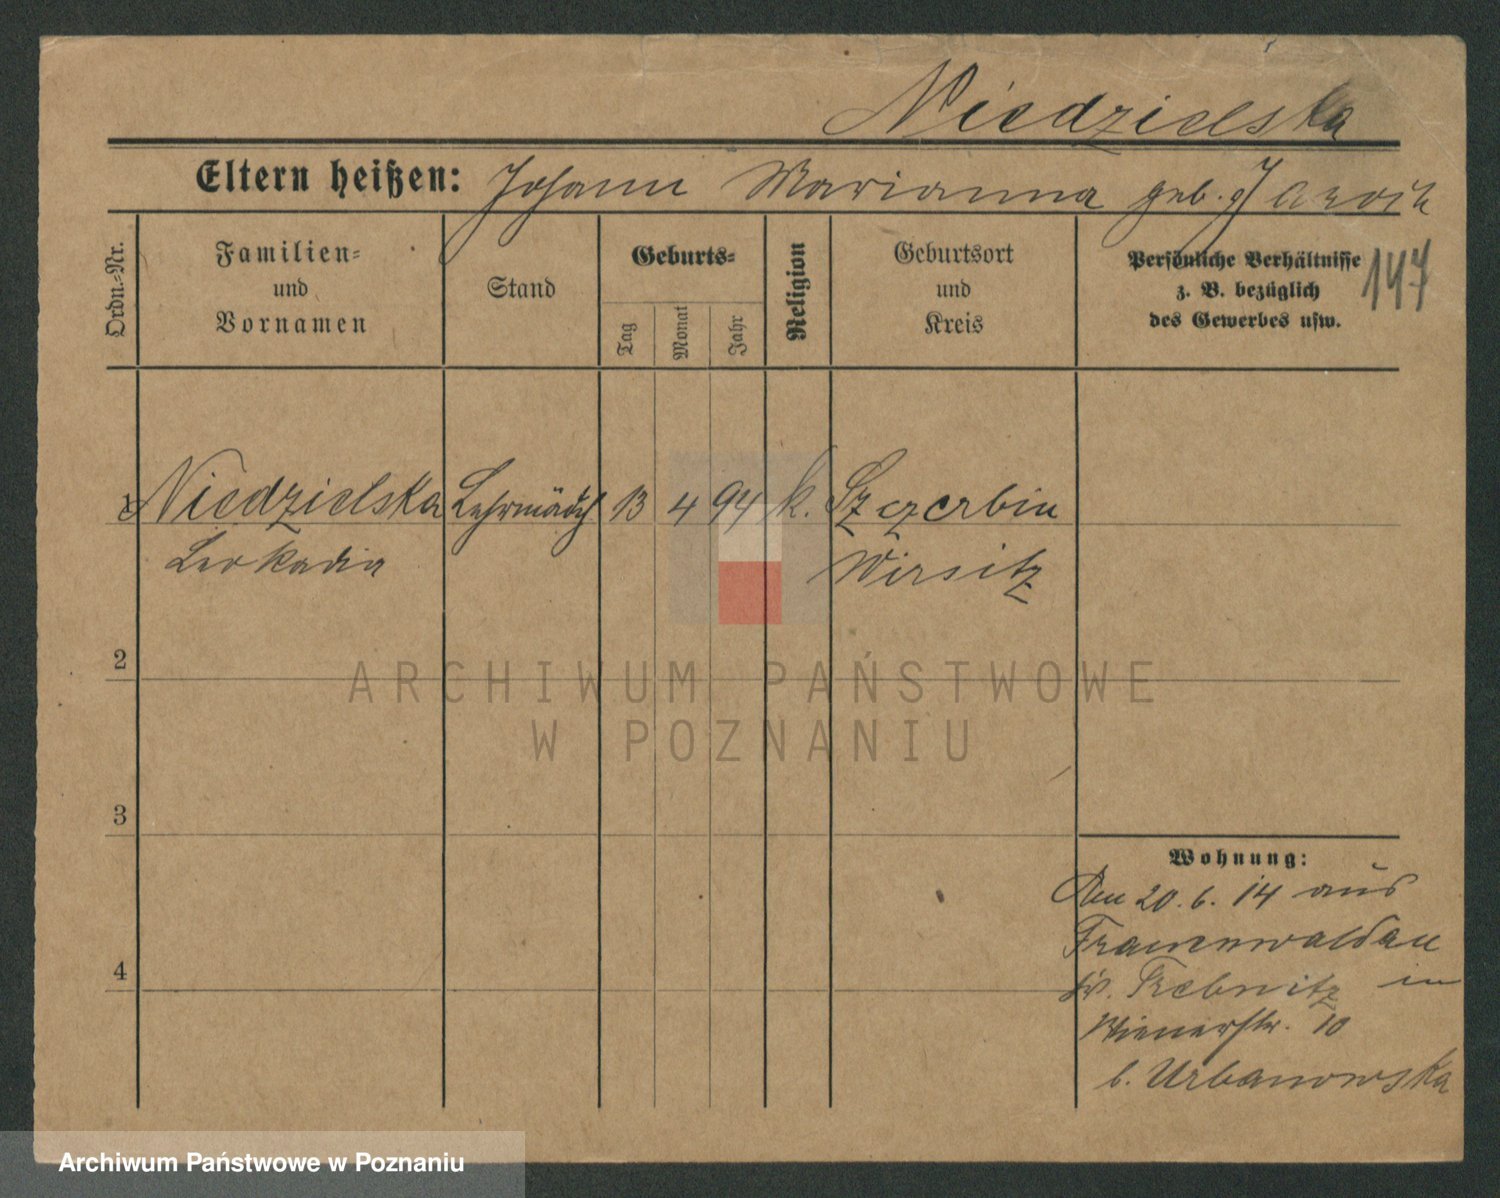 Niedzielska
Eltern heißen: Johann Marianna geb. Jarosik
Ordn.-Nr.
Familien-
und
Vornamen
Stand
Geburts-
Tag
Monat
Jahr
Religion
Geburtsort
und
Kreis
Persönliche Verhältnisse
z. B. bezüglich
des Gewerbes usw.
147
1 Niedzielska Lehrmädch 13 4 94 k. Szczerbin
Leokadia Wirsitz
2
3
4
ARCHIWUM PAŃSTWOWE
W POZNANIU
Wohnung:
Am 20.6.14 aus
Frauenwaldau
Kr. Trebnitz in
Wienerstr. 10
b. Urbanowska
Archiwum Państwowe w Poznaniu